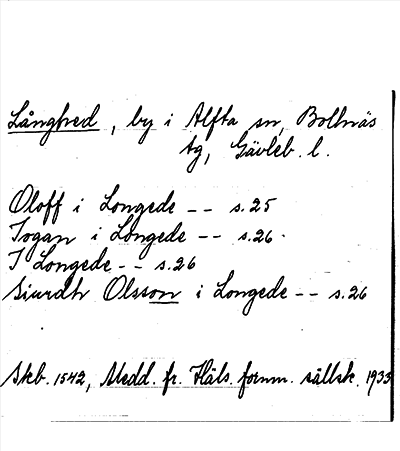 Långhed, by i Alfta sn, Bollnäs
tg, Gävleb. l.
Oloff i Longede -- s. 25
Jogan i Longede -- s. 26
I Longede -- s. 26
Siurdh Olsson i Longede -- s. 26
Skb. 1542, Medd. fr. Häls. fornm. sällsk. 1933